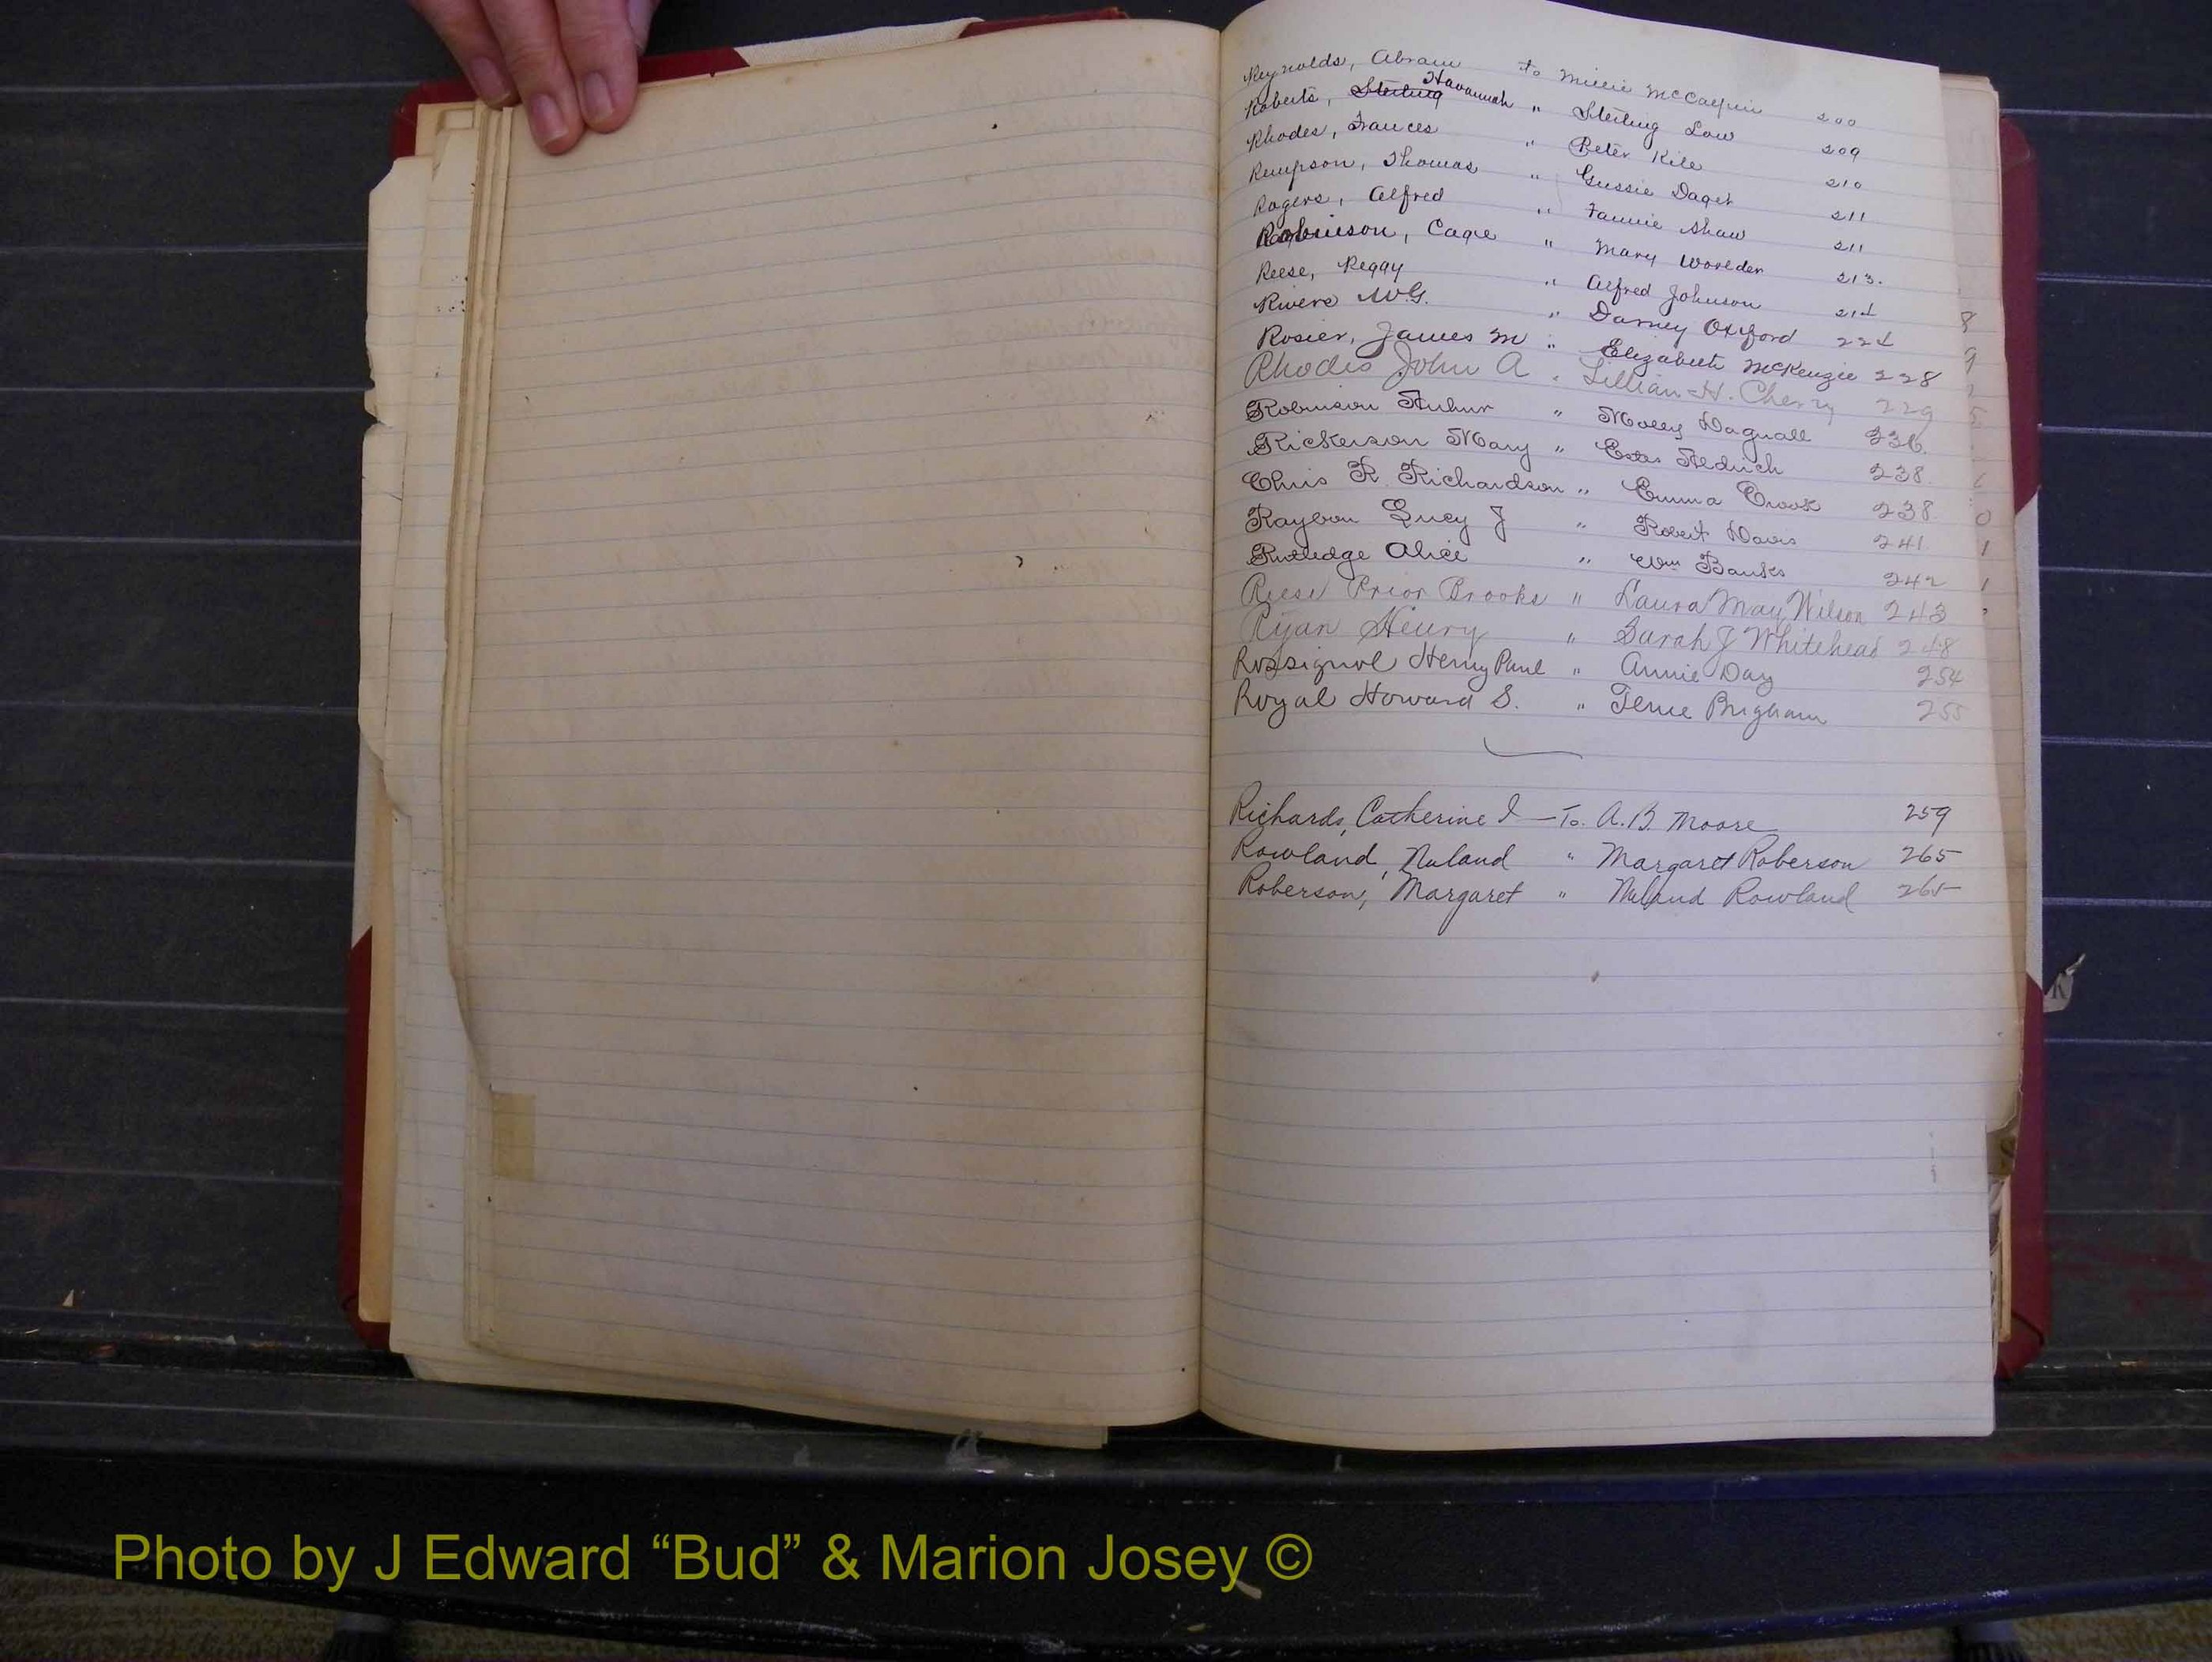 Reynolds, Abram to Millie McCalpin 200
Roberts, Sterling Havannah " Sterling Low 209
Rhodes, Frances " Peter Kile 210
Rempson, Thomas " Gussie Daget 211
Rogers, Alfred " Fannie Shaw 211
Robinson, Cage " Mary Worlder 213.
Reese, Peggy " Alfred Johnson 214
Rivers W.G. " Darney Oxford 224
Rosier, James M " Elizabeth McKenzie 228
Rhodes John A " Lillian H. Cherry 229
Robinson Arthur " Molley Dagnall 236
Rickerson Mary " Aldrich 238
Chris R. Richardson " Emma Crook 238
Raybon Lucy J " Robert Davis 241
Rutledge Alice " Wm Banks 242
Reese Prior Brooks " Laura May Wilson 243
Ryan Henry " Sarah J Whitehead 248
Rossignol Henry Paul " Annie Day 254
Royal Howard S. " Brigham 255
Richards, Catherine I — To. A.B. Moore 259
Rowland, Nuland " Margaret Roberson 265
Roberson, Margaret " Nuland Rowland 265
Photo by J Edward “Bud” & Marion Josey ©